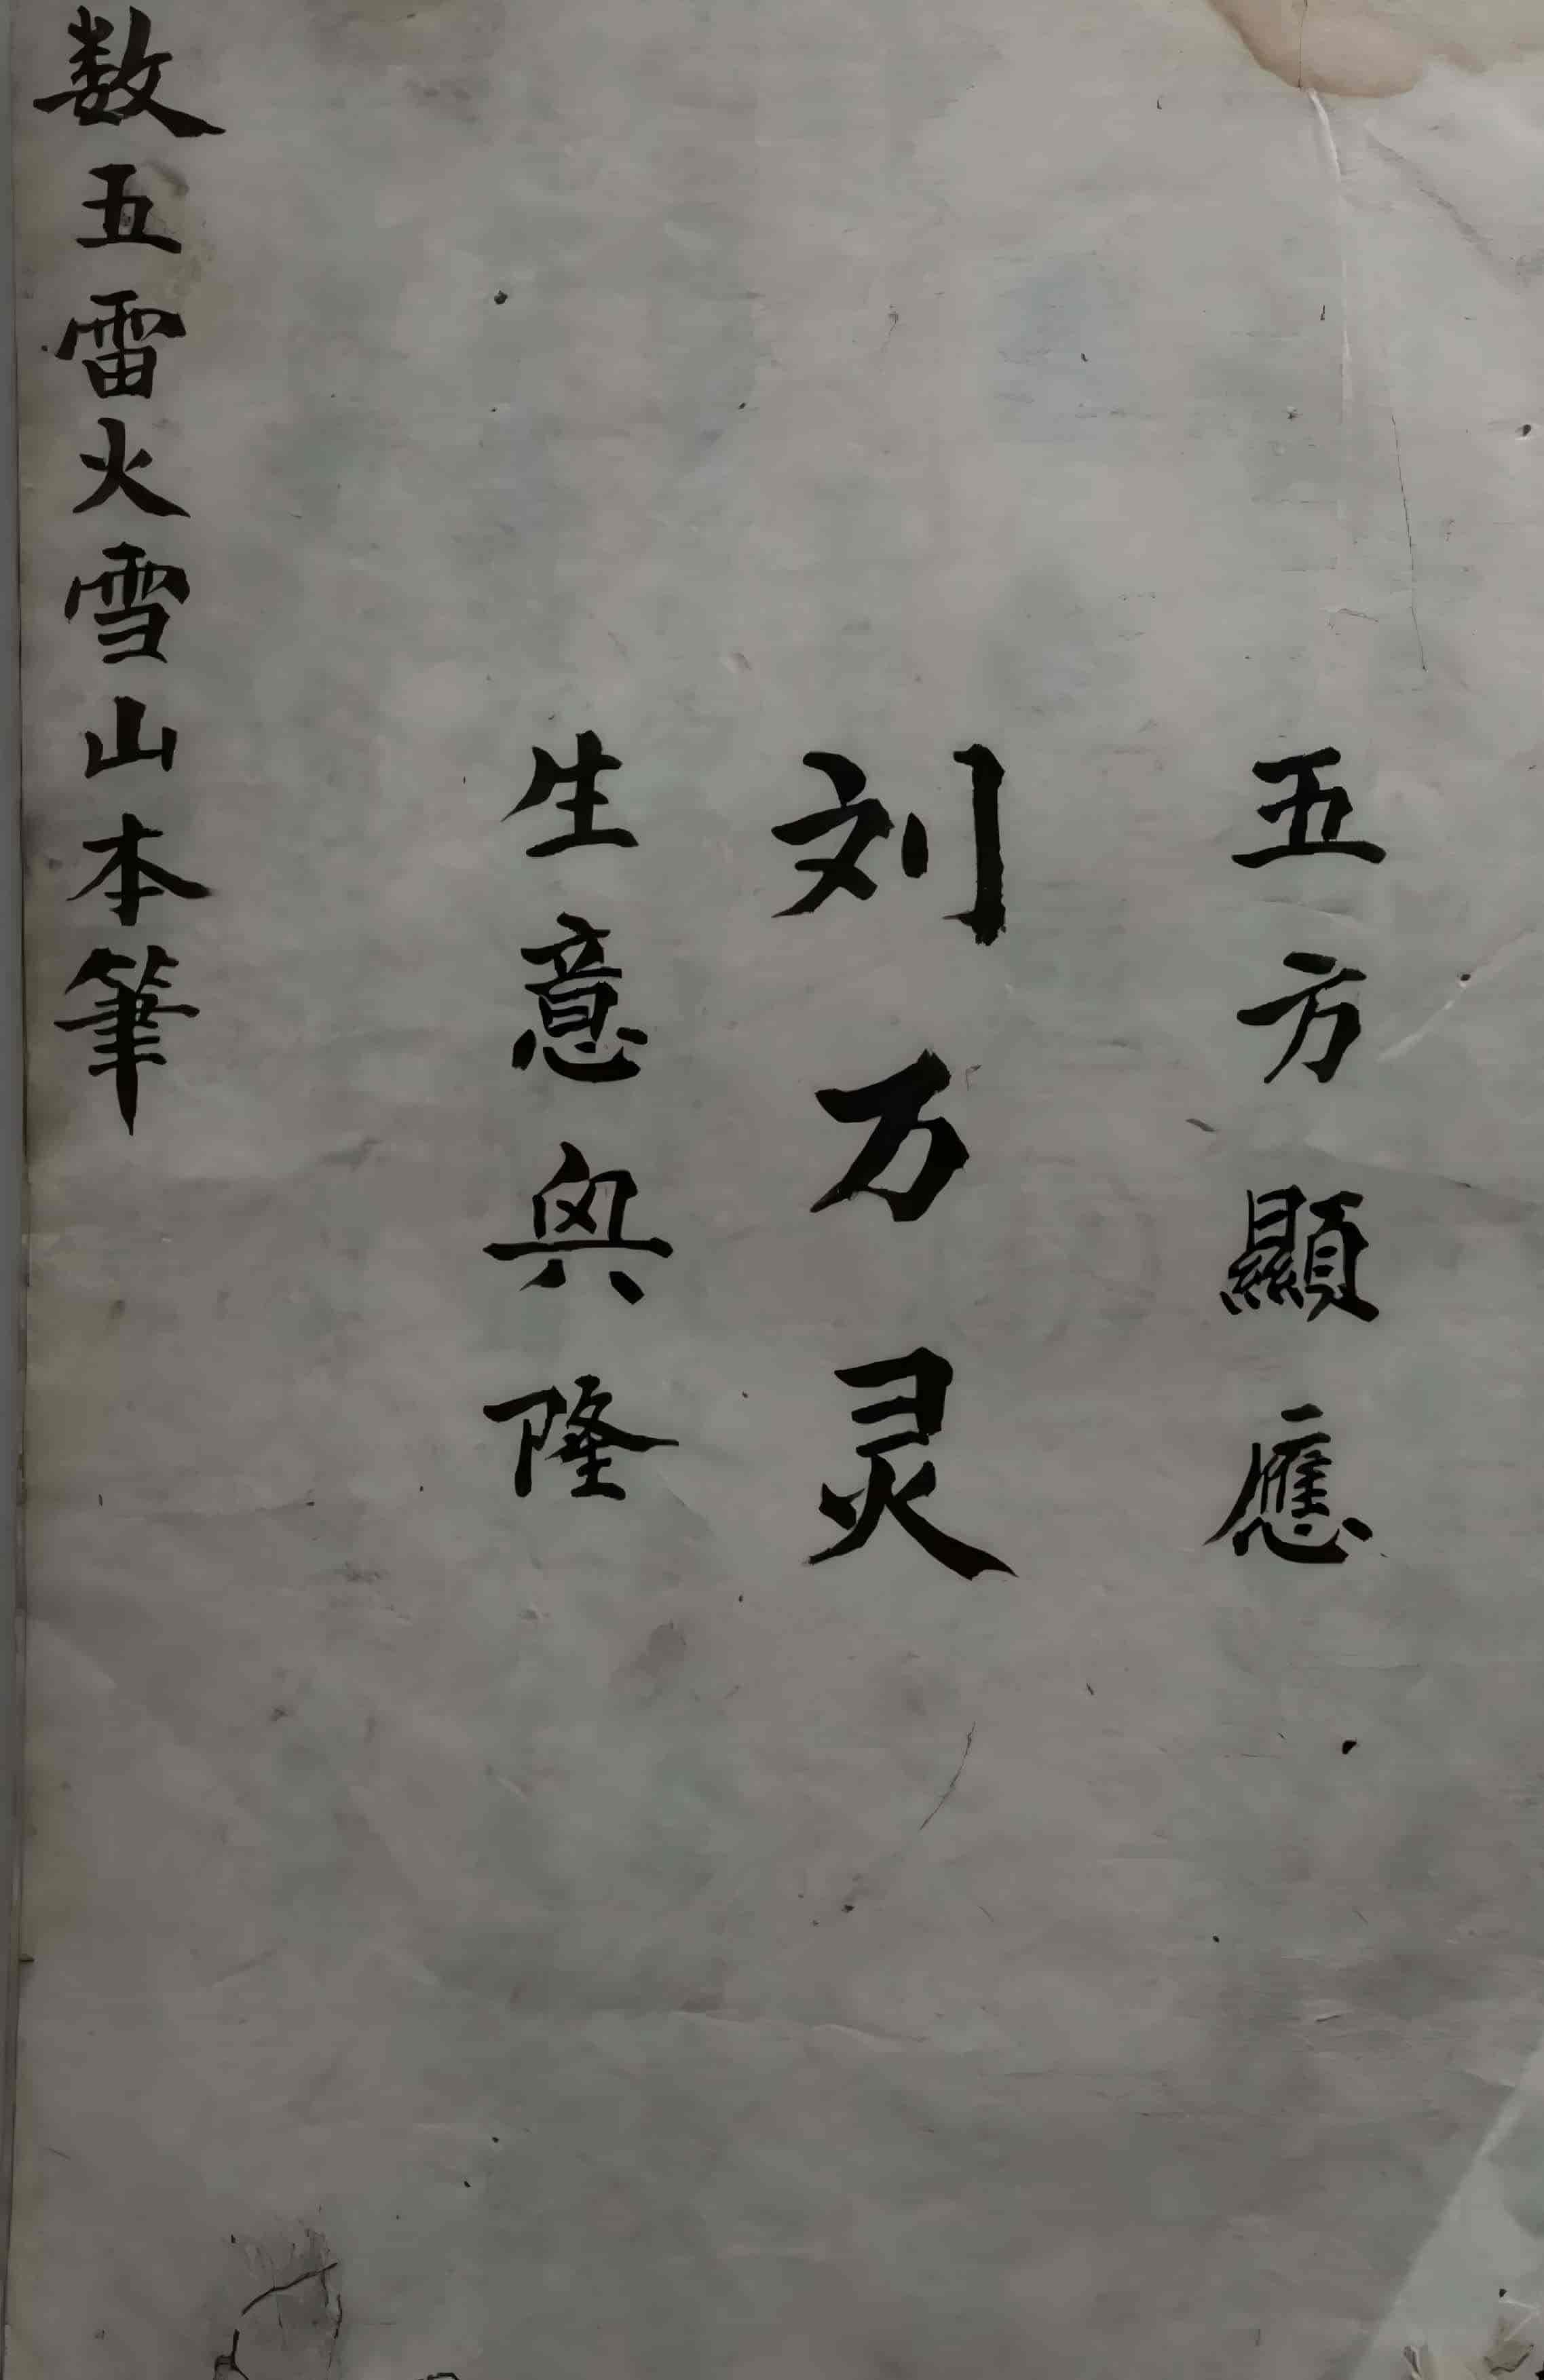 五方顯應
刘万灵
生意興隆
数五雷火雪山本筆